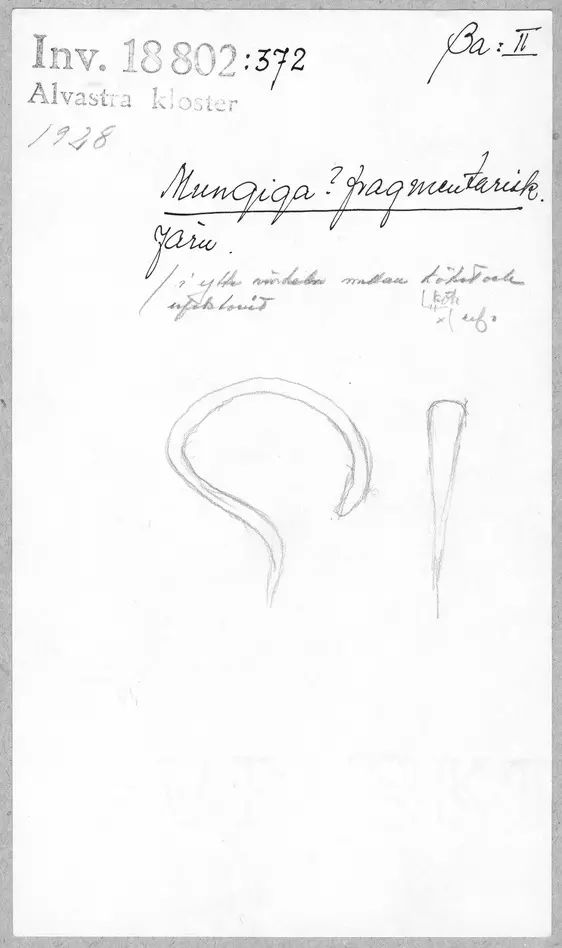 Inv. 18802:372
Ba: II
Alvastra kloster
1928
Mungiga? fragmentarisk.
Järn.
i yttre vinkeln mellan köket och
refektoriet